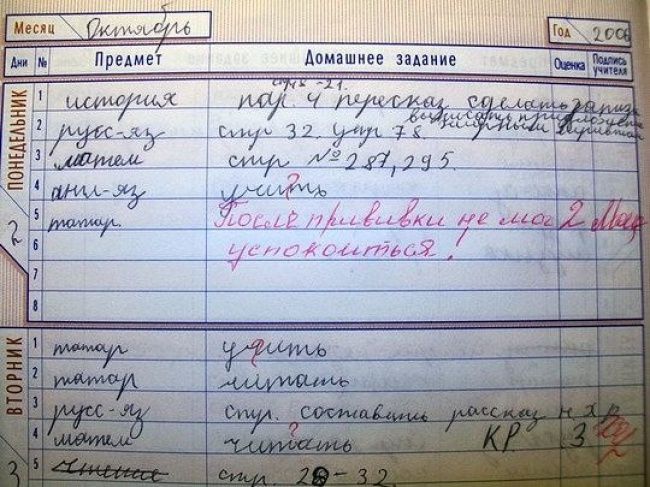 Месяц Октябрь Год 2006
Дни № Предмет Домашнее задание Оценка Подпись учителя
ПОНЕДЕЛЬНИК 2
1 история пар. 4 пересказ сделать
2 русс-яз стр 32. упр 78.
3 матем стр № 287, 295.
4 англ-яз учить ?
5 татар. После прививки не мог 2
6 успокоиться!
7
8
ВТОРНИК 3
1 татар учить
2 татар читать
3 русс-яз стр. составить рассказ
4 матем читать ? КР 3
5 чтение стр. 28-32.